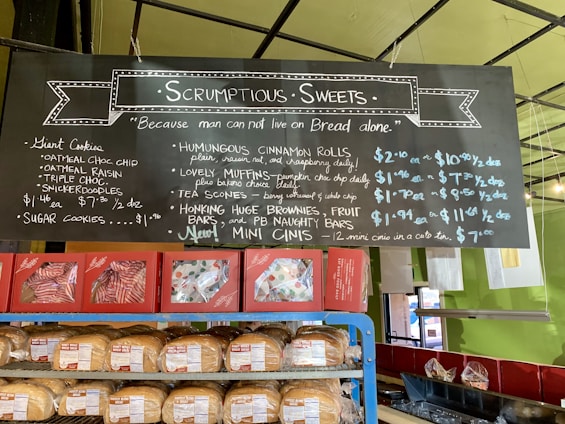 SCRUMPTIOUS · SWEETS ·
"Because man can not live on Bread alone."
· Giant Cookies
· OATMEAL CHOC CHIP
· OATMEAL RAISIN
· TRIPLE CHOC.
· SNICKERDOODLES
$1.46 ea $7.30 1/2 dz
· SUGAR COOKIES .... $1.96
· HUMUNGOUS CINNAMON ROLLS $2.10 ea ~ $10.50 1/2 dz
plain, raisin nut, and raspberry daily!
· LOVELY MUFFINS - pumpkin choc chip daily $1.46 ea ~ $7.30 1/2 dz
plus bakers choice daily
· TEA SCONES - berry oatmeal & white chip $1.70 ea ~ $8.50 1/2 dz
· HONKING HUGE BROWNIES, FRUIT $1.94 ea ~ 1/2 dz
BARS, and PB NAUGHTY BARS
New! · MINI CINIS - 12 mini cinis in a cute tin.